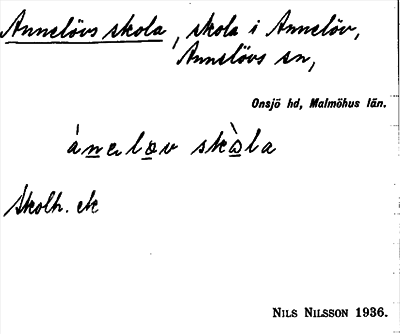 Annelövs skola, skola i Annelöv,
Annelövs sn,
Onsjö hd, Malmöhus län.
ánelav skàla
Skolh. ek
NILS NILSSON 1936.